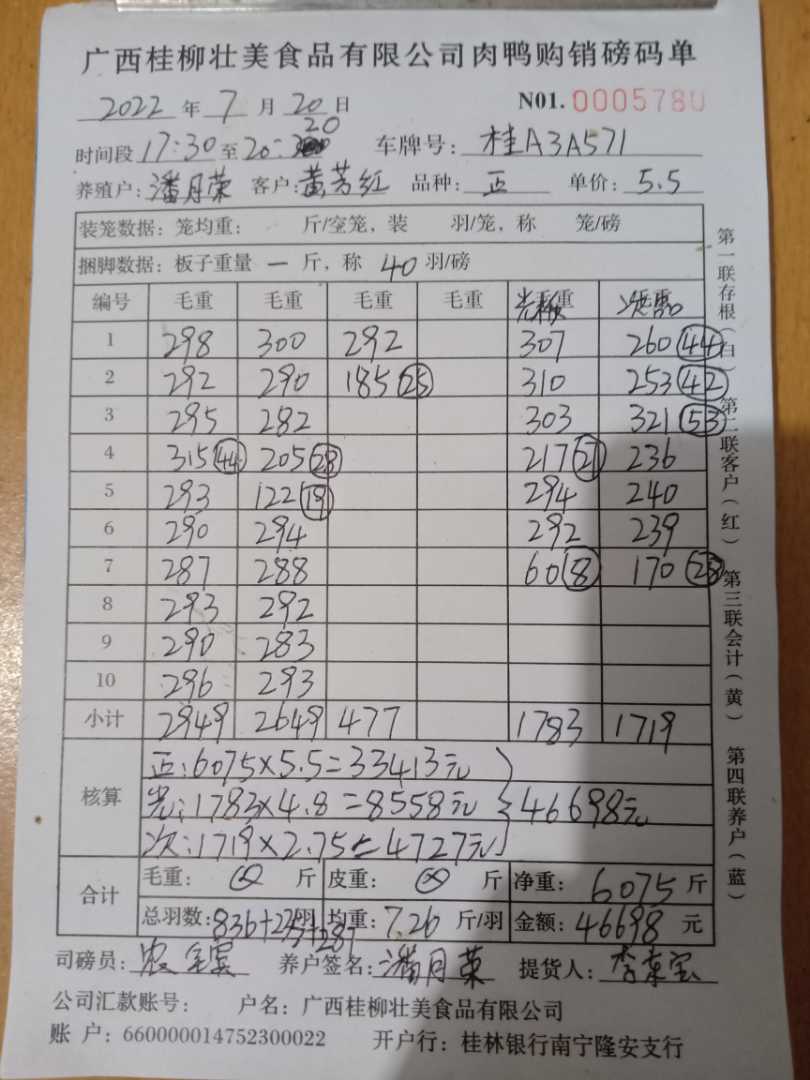 广西桂柳壮美食品有限公司肉鸭购销磅码单
2022 年 7 月 20 日 N01. 0005780
时间段 17:30 至 20: 20 车牌号: 桂A3A571
养殖户: 潘月荣 客户: 黄芳红 品种: 正 单价: 5.5
装笼数据: 笼均重: 斤/空笼, 装 羽/笼, 称 笼/磅
捆脚数据: 板子重量 一 斤, 称 40 羽/磅
编号 毛重 毛重 毛重 毛重
1 298 300 292 307 260 44
2 292 290 185 25 310 253 42
3 295 282 303 321 53
4 315 44 205 28 217 236
5 293 122 19 294 240
6 290 294 292 239
7 287 288 60 8 170 28
8 293 292
9 290 283
10 296 293
小计 2949 2649 477 1783 1719
核算
正: 6075×5.5=33413元
光: 1783×4.8=8558元 } 46698元
次: 1719×2.75=4727元
合计
毛重: 斤 皮重: 斤 净重: 6075 斤
总羽数: 836+ +287 羽 均重: 7.26 斤/羽 金额: 46698 元
司磅员: 养户签名: 潘月荣 提货人:
公司汇款账号: 户名: 广西桂柳壮美食品有限公司
账 户: 660000014752300022 开户行: 桂林银行南宁隆安支行
第一联存根(白) 第二联客户(红) 第三联会计(黄) 第四联养户(蓝)